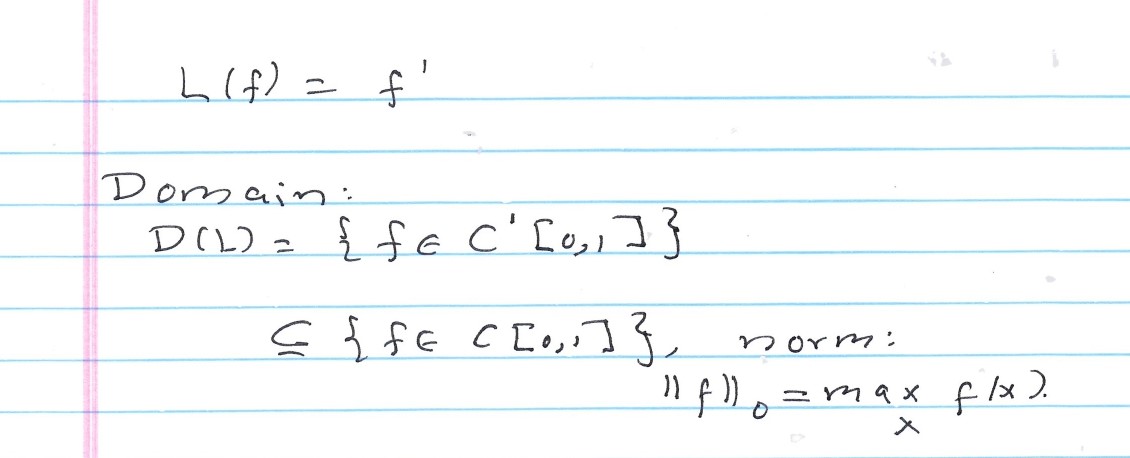 L(f) = f'
Domain:
D(L) = { f ∈ C' [0,1] }
⊆ { f ∈ C [0,1] }, norm:
||f||₀ = max f(x).
x